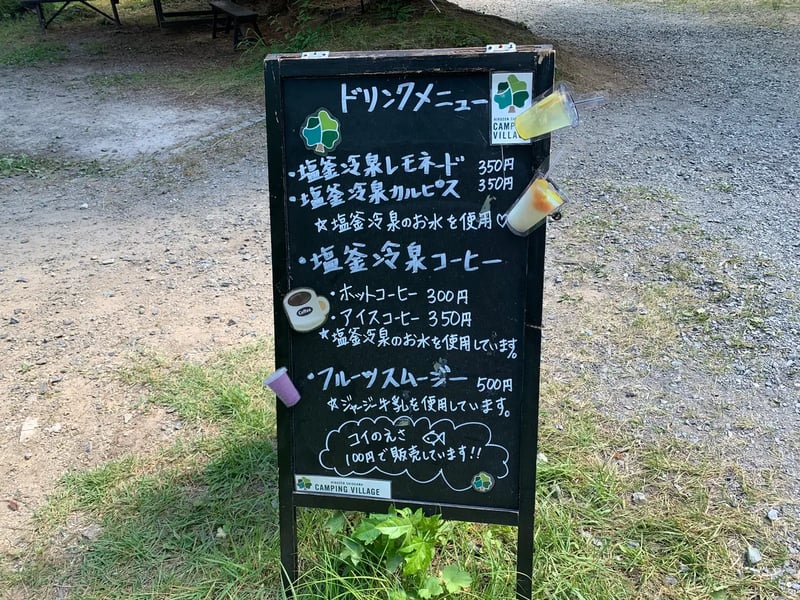 ドリンクメニュー
HIRUZEN SHIOGAMA
CAMPING
VILLAGE
・塩釜冷泉レモネード 350円
・塩釜冷泉カルピス 350円
☆塩釜冷泉のお水を使用♡
・塩釜冷泉コーヒー
・ホットコーヒー 300円
・アイスコーヒー 350円
Coffee
★塩釜冷泉のお水を使用しています。
・フルーツスムージー 500円
☆ジャージー牛乳を使用しています。
コイのえさ
100円で販売しています!!
HIRUZEN SHIOGAMA
CAMPING VILLAGE